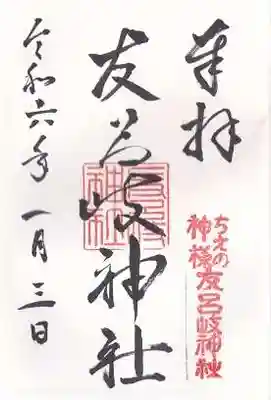 奉拝
ちえの
神様友呂岐神社
友呂岐神社
友呂岐神社
令和六年 一月 三日